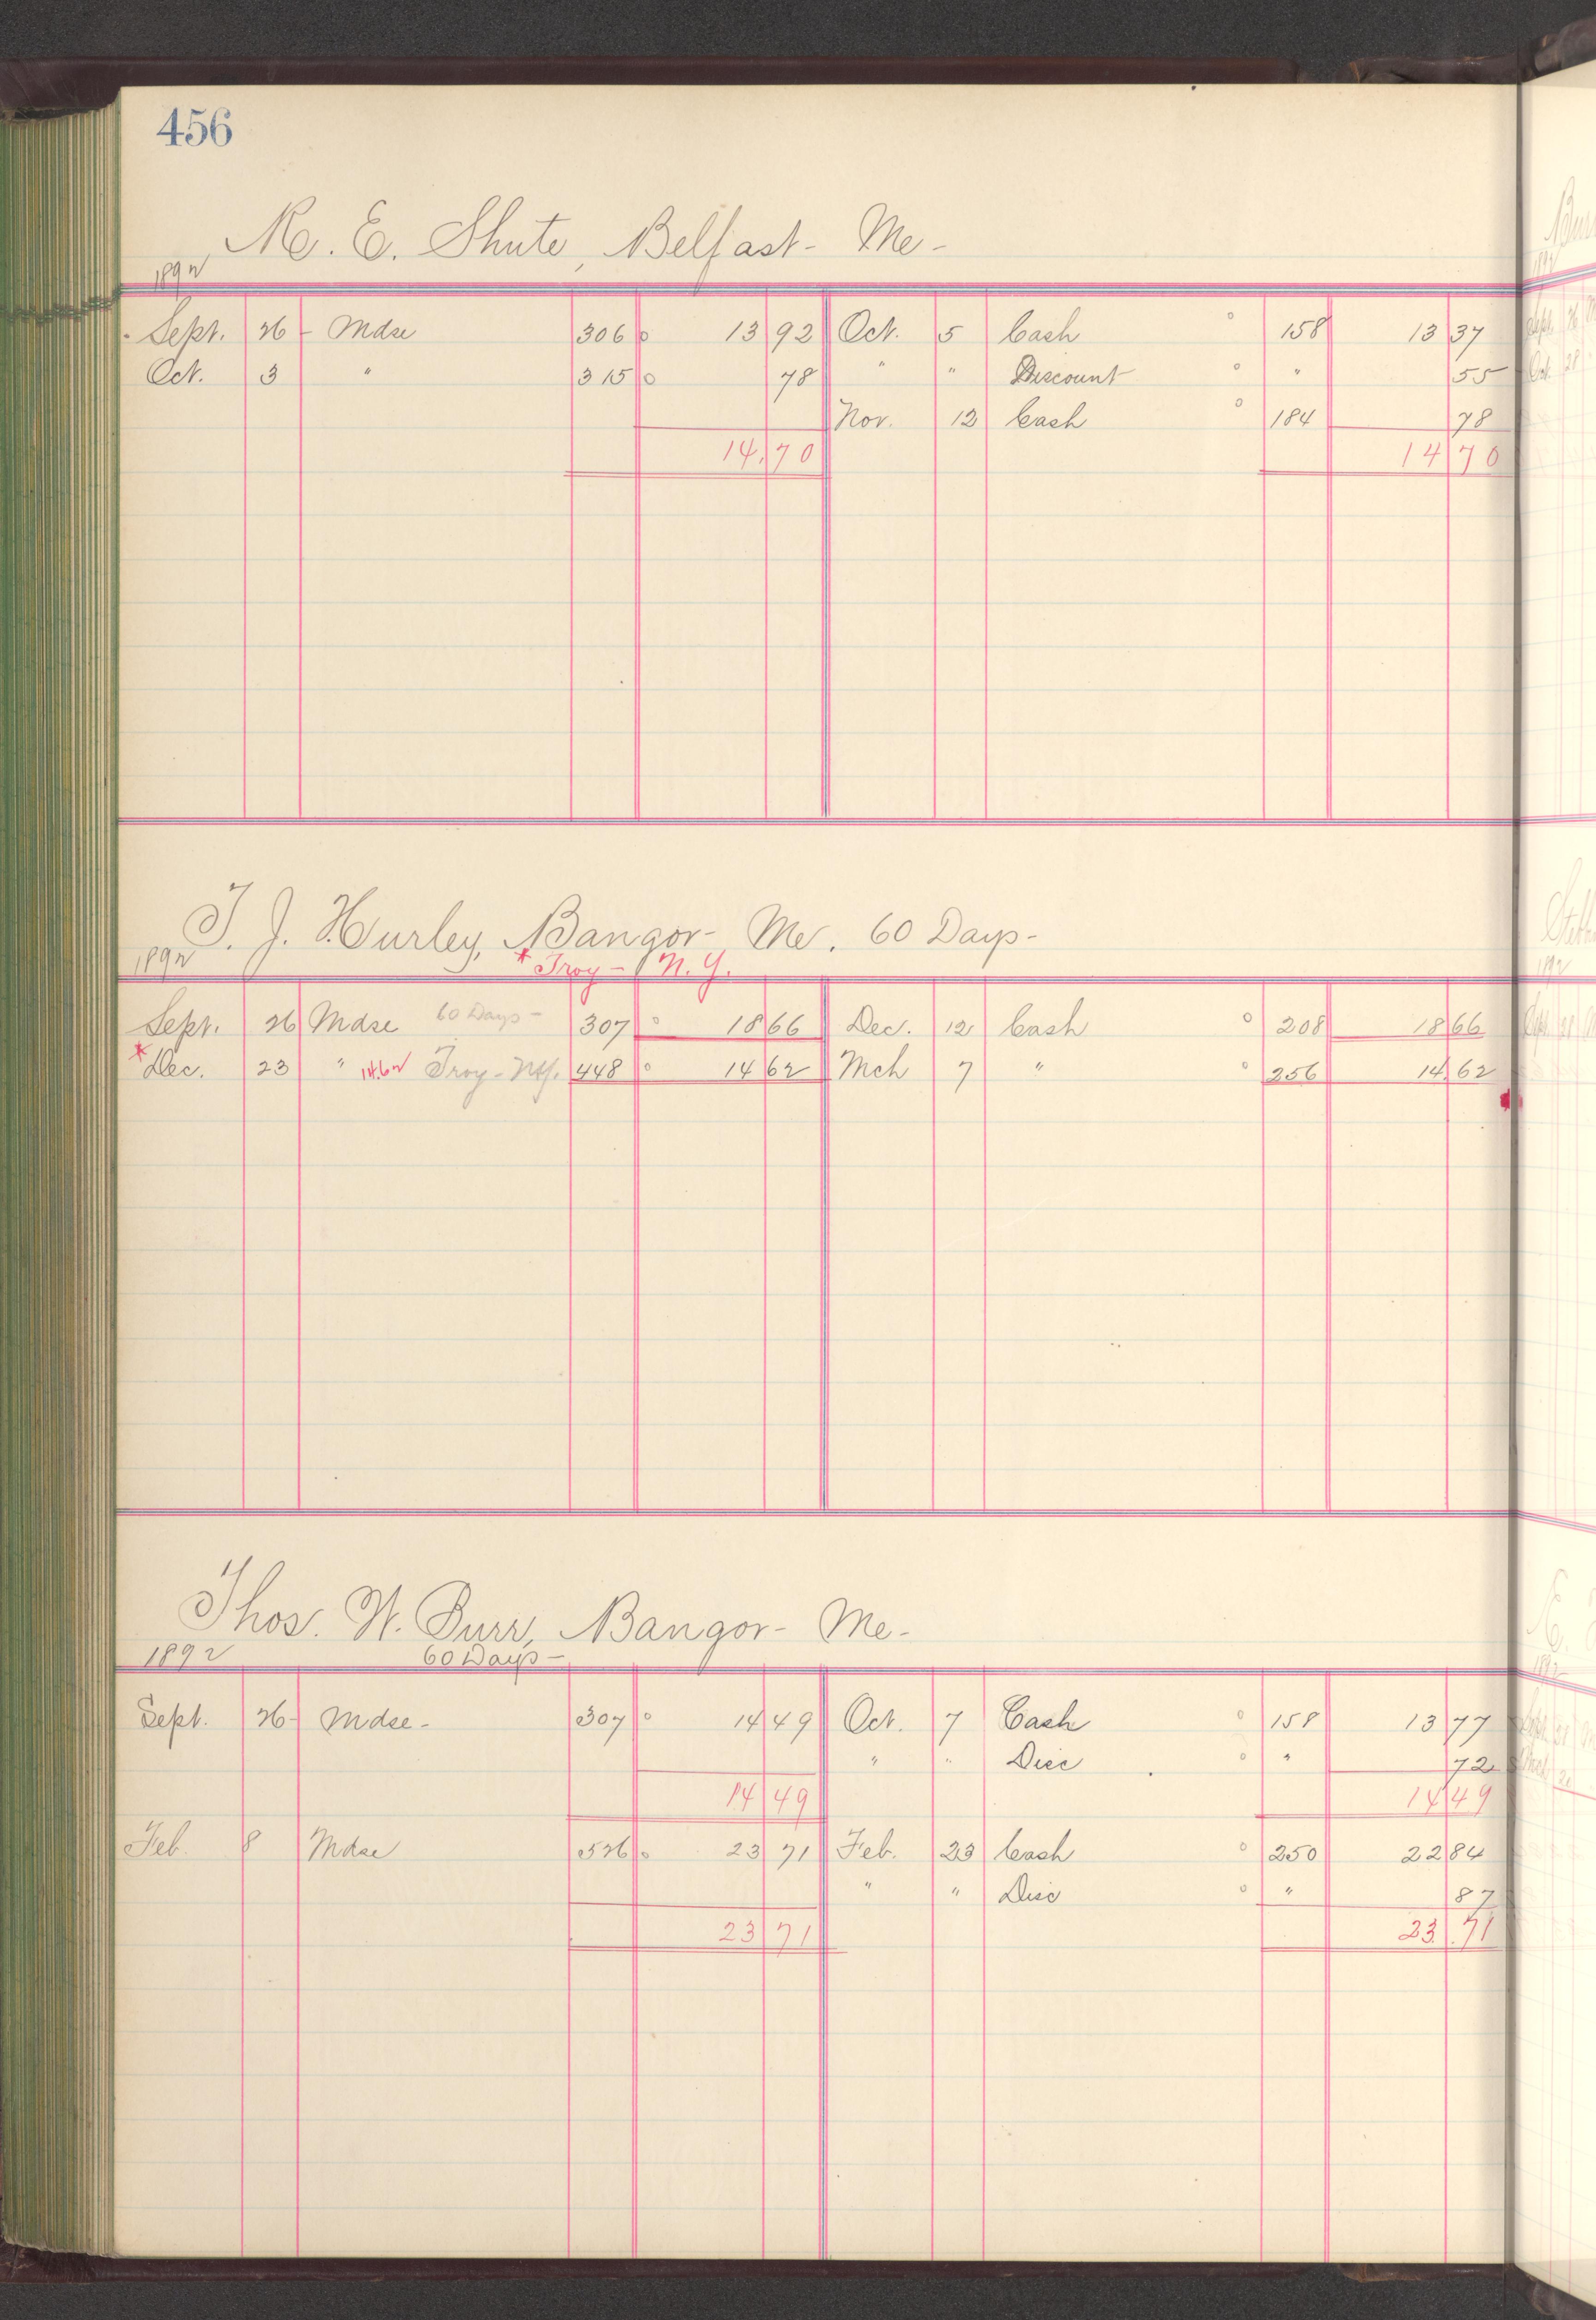 456
M. E. Shute, Belfast - Me -
1892
Sept. 26 - Mdse 306 13 92 Oct. 5 Cash 158 13 37
Oct. 3 " 315 78 " " Discount " 55
Nov. 12 Cash 184 78
14.70 14 70
T. J. Hurley, Bangor - Me. 60 Days -
1892 * Troy - N.Y.
Sept. 26 Mdse 60 Days - 307 18 66 Dec. 12 Cash 208 18 66
* Dec. 23 " 14.62 Troy - N.Y. 448 14 62 Mch 7 " 256 14 62
Thos. W. Burr, Bangor - Me -
1892 60 Days -
Sept. 26 - Mdse - 307 14 49 Oct. 7 Cash 158 13 77
" " Disc " 72
14 49 14 49
Feb. 8 Mdse 526 23 71 Feb. 23 Cash 250 22 84
" " Disc " 87
23 71 23 71